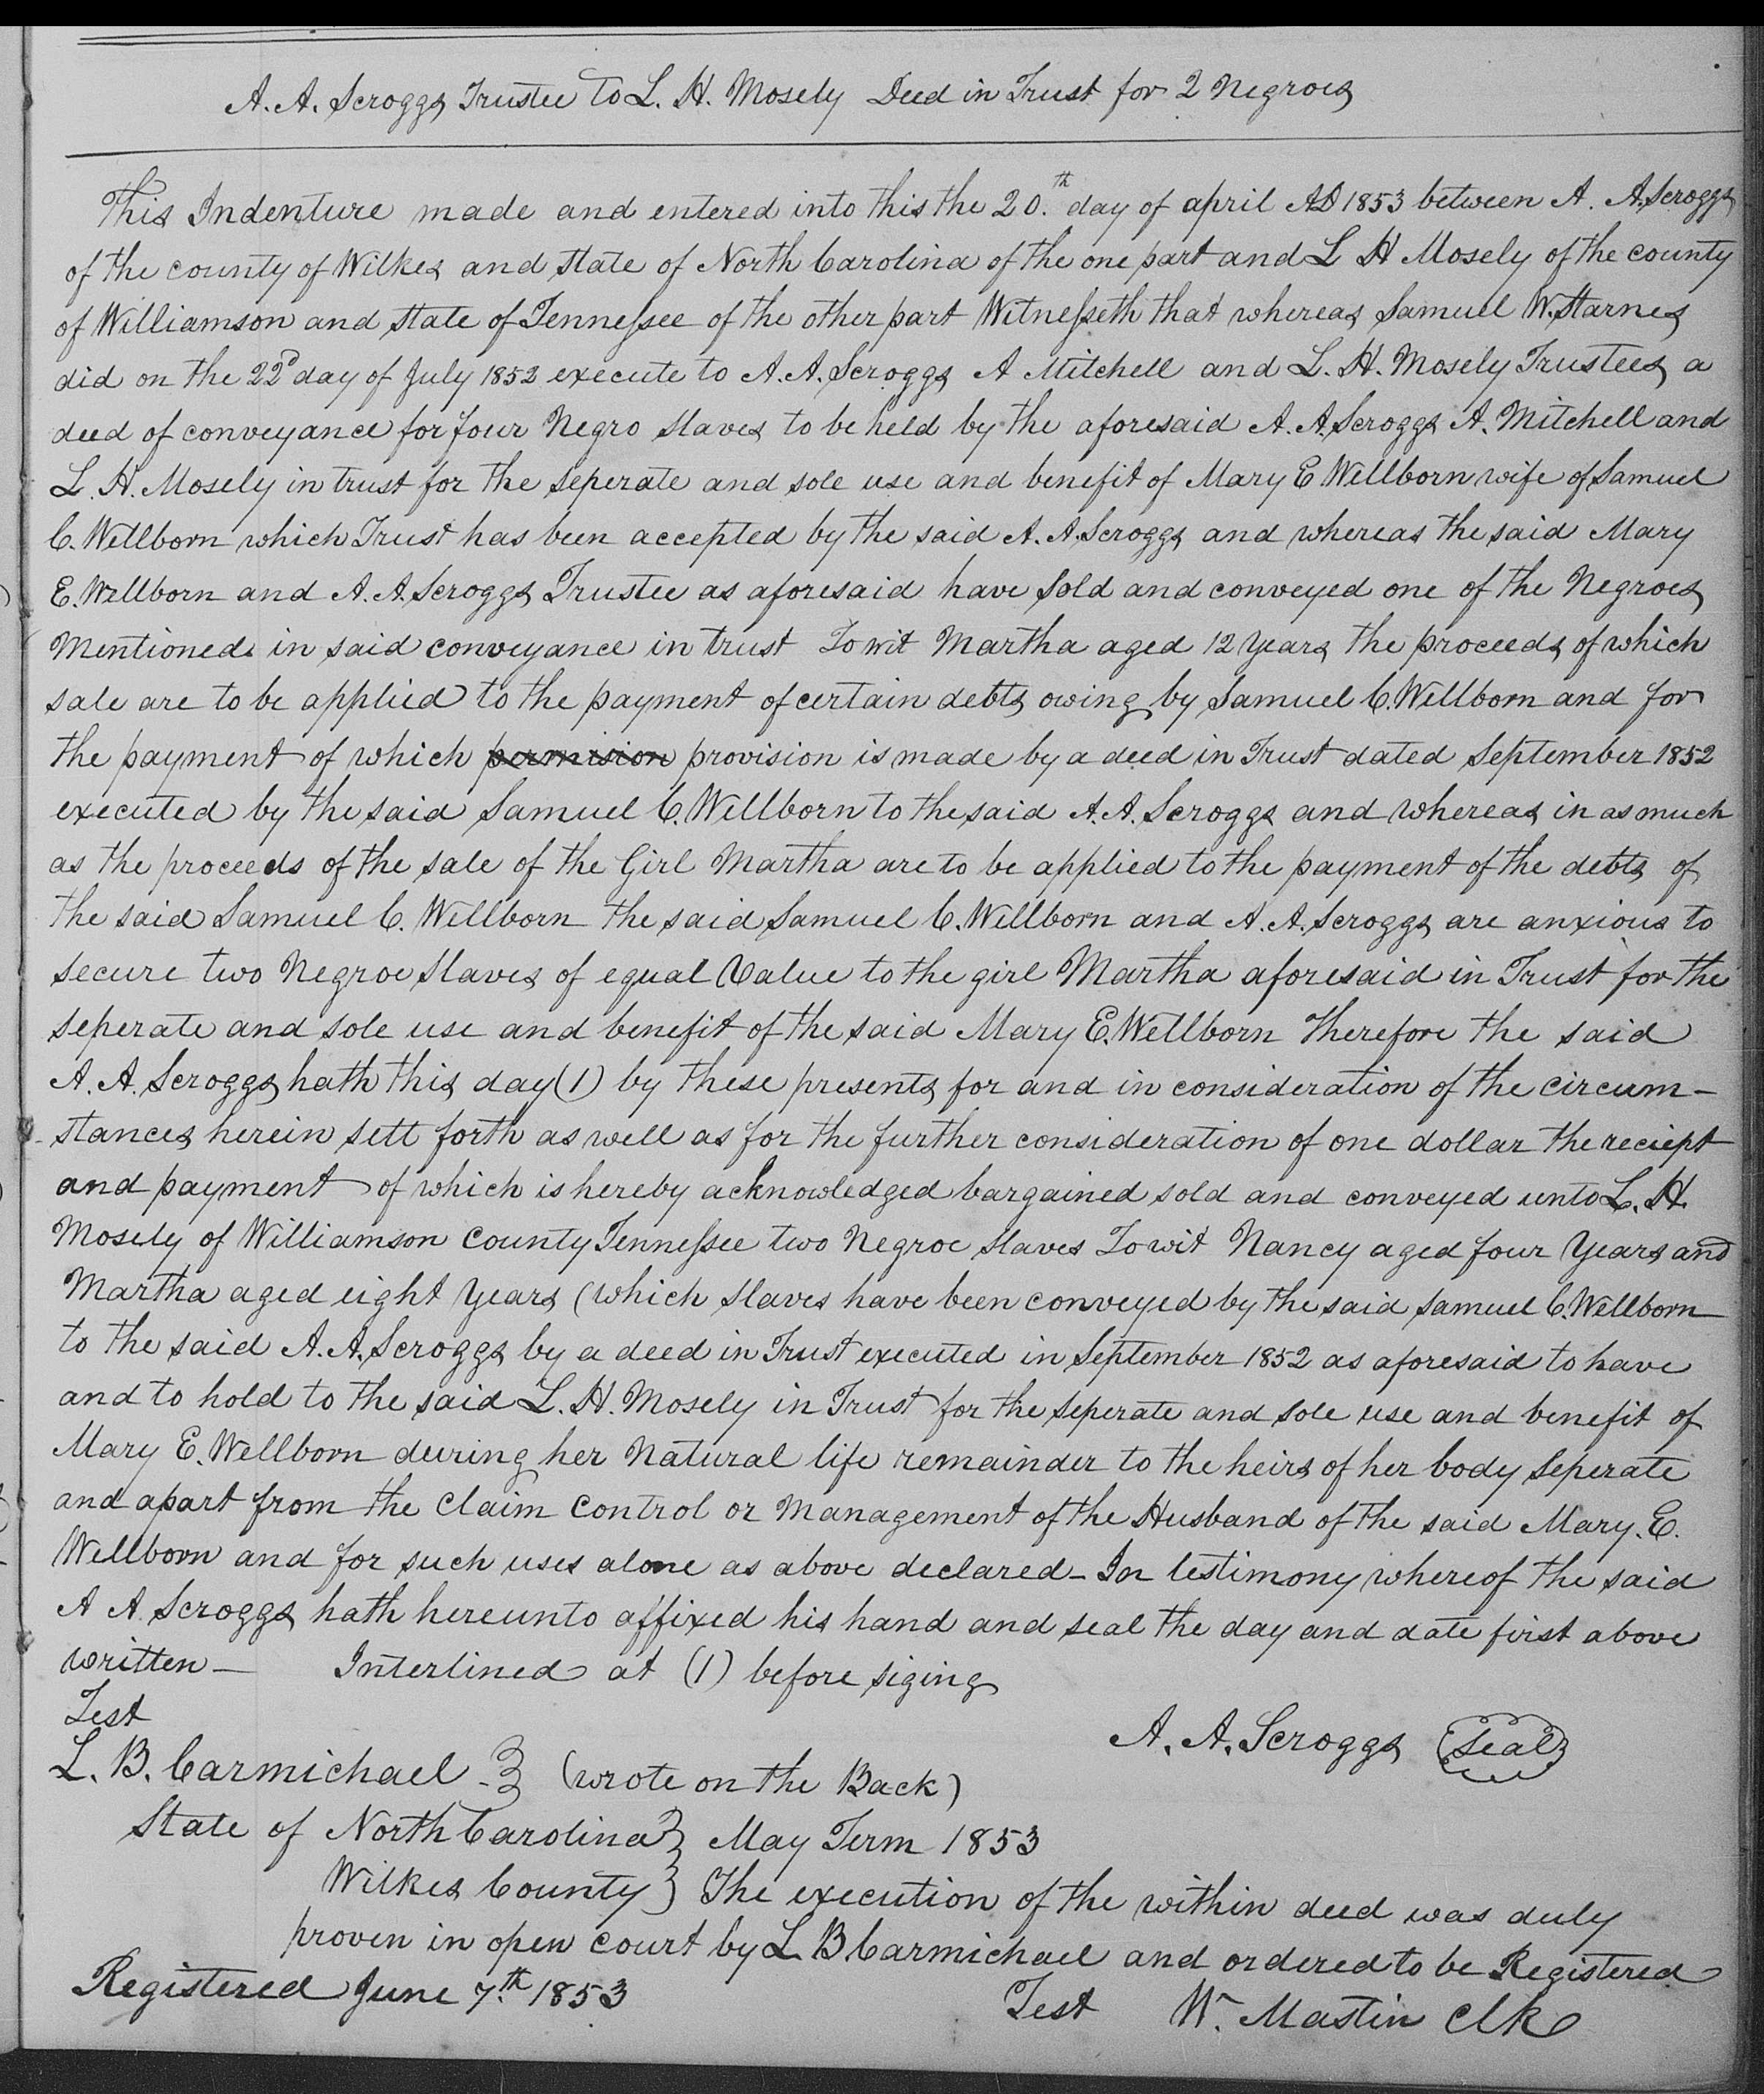 A. A. Scroggs Trustee To L. H. Mosely Deed in Trust for 2 Negroes
This Indenture made and entered into this the 20.th day of april AD 1853 between A. A. Scroggs
of the county of Wilkes and state of North Carolina of the one part and L H Mosely of the county
of Williamson and state of Tennessee of the other part Witnesseth that whereas Samuel W. Starnes
did on the 22d day of July 1852 execute to A. A. Scroggs A Mitchell and L. H. Mosely Trustees a
deed of conveyance for four Negro slaves to be held by the aforesaid A. A. Scroggs A. Mitchell and
L. H. Mosely in trust for the seperate and sole use and benefit of Mary E Wellborn wife of Samuel
C. Wellborn which Trust has been accepted by the said A. A. Scroggs and whereas the said Mary
E. Wellborn and A. A. Scroggs Trustee as aforesaid have sold and conveyed one of the Negroes
Mentioned in said conveyance in trust To wit Martha aged 12 years the proceeds of which
sale are to be applied to the payment of certain debts owing by Samuel C. Wellborn and for
the payment of which permision provision is made by a deed in Trust dated September 1852
executed by the said Samuel C. Wellborn to the said A. A. Scroggs and whereas in as much
as the proceeds of the sale of the Girl Martha are to be applied to the payment of the debts of
the said Samuel C. Wellborn the said Samuel C. Wellborn and A. A. Scroggs are anxious to
secure two Negroe slaves of equal Value to the girl Martha aforesaid in Trust for the
seperate and sole use and benefit of the said Mary E. Wellborn Therefore the said
A. A. Scroggs hath this day (1) by these presents for and in consideration of the circum-
stances herein sett forth as well as for the further consideration of one dollar the reciept
and payment of which is hereby acknowledged bargained sold and conveyed unto L. H.
Mosely of Williamson County Tennessee two Negroe slaves To wit Nancy aged four Years and
Martha aged eight Years (which slaves have been conveyed by the said Samuel C. Wellborn
to the said A. A. Scroggs by a deed in Trust executed in September 1852 as aforesaid to have
and to hold to the said L. H. Mosely in Trust for the seperate and sole use and benefit of
Mary E. Wellborn during her Natural life remainder to the heirs of her body seperate
and apart from the Claim Control or Management of the Husband of the said Mary. E.
Wellborn and for such uses alone as above declared - In testimony whereof the said
A A. Scroggs hath hereunto affixed his hand and seal the day and date first above
written - Interlined at (1) before siging
Test
A. A. Scroggs (Seal)
L. B. Carmichael } (wrote on the Back)
State of North Carolina } May Term 1853
Wilkes County } The execution of the within deed was duly
proven in open court by L B Carmichael and ordered to be Registered
Registered June 7.th 1853
Test W. Mastin Clk